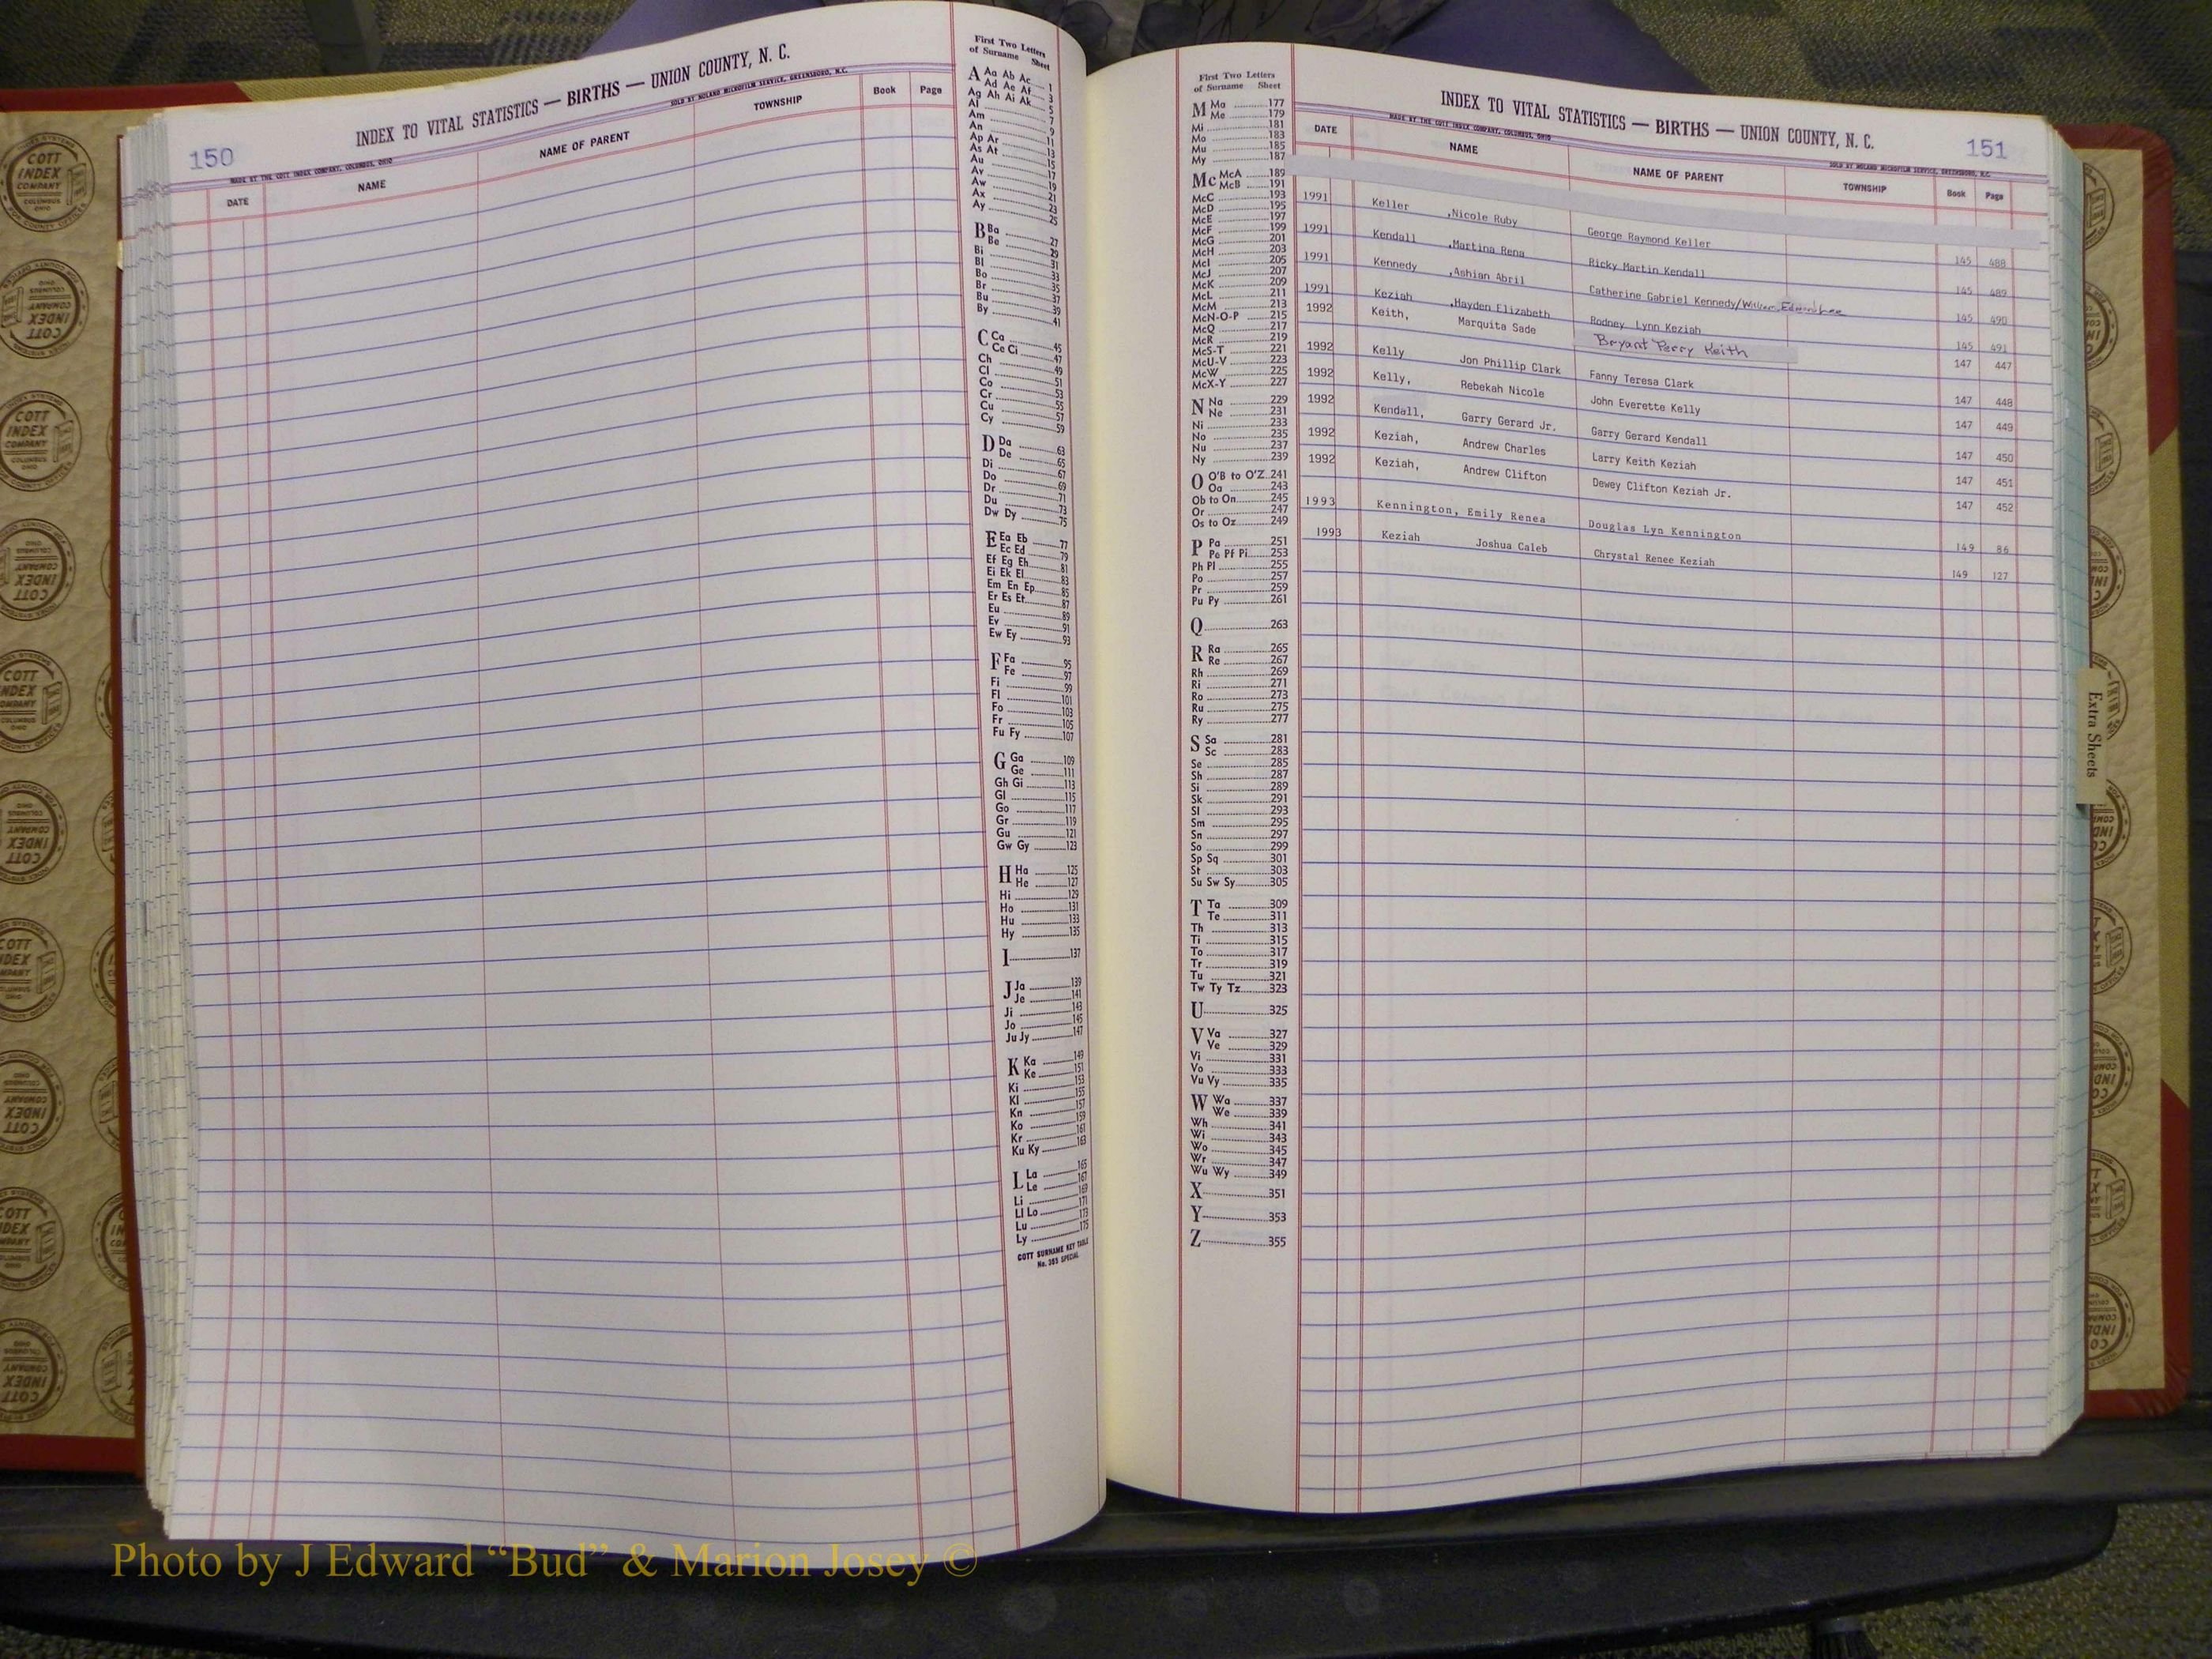 150
INDEX TO VITAL STATISTICS — BIRTHS — UNION COUNTY, N. C.
MADE BY THE COTT INDEX COMPANY, COLUMBUS, OHIO SOLD BY NOLAND MICROFILM SERVICE, GREENSBORO, N.C.
DATE NAME NAME OF PARENT TOWNSHIP Book Page
First Two Letters
of Surname Sheet
A Aa Ab Ac 1
Ad Ae Af 3
Ag Ah Ai Ak 5
Al 7
Am 9
An 11
Ap Ar 13
As At 15
Au 17
Av 19
Aw 21
Ax 23
Ay 25
B Ba 27
Be 29
Bi 31
Bl 33
Bo 35
Br 37
Bu 39
By 41
C Ca 45
Ce Ci 47
Ch 49
Cl 51
Co 53
Cr 55
Cu 57
Cy 59
D Da 63
De 65
Di 67
Do 69
Dr 71
Du 73
Dw Dy 75
E Ea Eb 77
Ec Ed 79
Ef Eg Eh 81
Ei Ek El 83
Em En Ep 85
Er Es Et 87
Eu 89
Ev 91
Ew Ey 93
F Fa 95
Fe 97
Fi 99
Fl 101
Fo 103
Fr 105
Fu Fy 107
G Ga 109
Ge 111
Gh Gi 113
Gl 115
Go 117
Gr 119
Gu 121
Gw Gy 123
H Ha 125
He 127
Hi 129
Ho 131
Hu 133
Hy 135
I 137
J Ja 139
Je 141
Ji 143
Jo 145
Ju Jy 147
K Ka 149
Ke 151
Ki 153
Kl 155
Kn 157
Ko 159
Kr 161
Ku Ky 163
L La 165
Le 167
Li 169
Ll Lo 171
Lu 173
Ly 175
COTT SURNAME KEY TABLE
No. 355 SPECIAL
First Two Letters
of Surname Sheet
M Ma 177
Me 179
Mi 181
Mo 183
Mu 185
My 187
Mc McA 189
McB 191
McC 193
McD 195
McE 197
McF 199
McG 201
McH 203
McI 205
McJ 207
McK 209
McL 211
McM 213
McN-O-P 215
McQ 217
McR 219
McS-T 221
McU-V 223
McW 225
McX-Y 227
N Na 229
Ne 231
Ni 233
No 235
Nu 237
Ny 239
O O'B to O'Z 241
Oa 243
Ob to On 245
Or 247
Os to Oz 249
P Pa 251
Pe Pf Pi 253
Ph Pl 255
Po 257
Pr 259
Pu Py 261
Q 263
R Ra 265
Re 267
Rh 269
Ri 271
Ro 273
Ru 275
Ry 277
S Sa 281
Sc 283
Se 285
Sh 287
Si 289
Sk 291
Sl 293
Sm 295
Sn 297
So 299
Sp Sq 301
St 303
Su Sw Sy 305
T Ta 309
Te 311
Th 313
Ti 315
To 317
Tr 319
Tu 321
Tw Ty Tz 323
U 325
V Va 327
Ve 329
Vi 331
Vo 333
Vu Vy 335
W Wa 337
We 339
Wh 341
Wi 343
Wo 345
Wr 347
Wu Wy 349
X 351
Y 353
Z 355
INDEX TO VITAL STATISTICS — BIRTHS — UNION COUNTY, N. C.
151
MADE BY THE COTT INDEX COMPANY, COLUMBUS, OHIO SOLD BY NOLAND MICROFILM SERVICE, GREENSBORO, N.C.
DATE NAME NAME OF PARENT TOWNSHIP Book Page
1991 Keller ,Nicole Ruby George Raymond Keller 145 488
1991 Kendall ,Martina Rena Ricky Martin Kendall 145 489
1991 Kennedy ,Ashian Abril Catherine Gabriel Kennedy/ 145 490
1991 Keziah ,Hayden Elizabeth Rodney Lynn Keziah 145 491
1992 Keith, Marquita Sade Bryant Perry Keith 147 447
1992 Kelly Jon Phillip Clark Fanny Teresa Clark 147 448
1992 Kelly, Rebekah Nicole John Everette Kelly 147 449
1992 Kendall, Garry Gerard Jr. Garry Gerard Kendall 147 450
1992 Keziah, Andrew Charles Larry Keith Keziah 147 451
1992 Keziah, Andrew Clifton Dewey Clifton Keziah Jr. 147 452
1993 Kennington, Emily Renea Douglas Lyn Kennington 149 86
1993 Keziah Joshua Caleb Chrystal Renee Keziah 149 127
Extra Sheets
COTT INDEX COMPANY COLUMBUS OHIO
Photo by J Edward “Bud” & Marion Josey ©